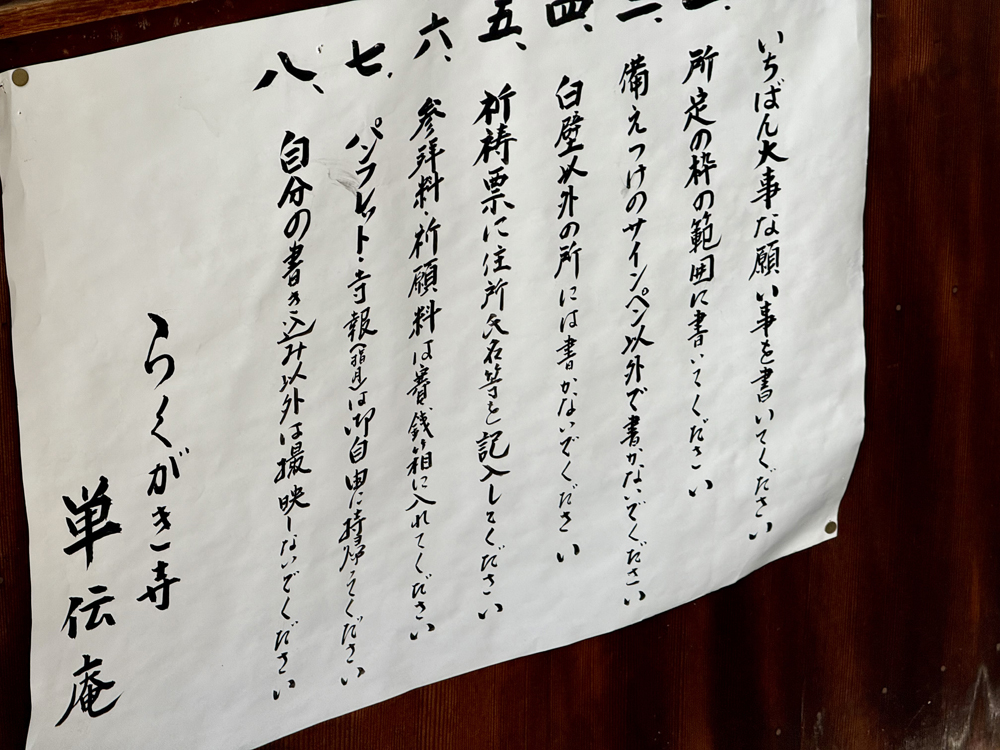 いちばん大事な願い事を書いてください
二、所定の枠の範囲に書いてください
三、備えつけのサインペン以外で書かないでください
四、白壁以外の所には書かないでください
五、祈祷票に住所氏名等を記入してください
六、参拝料・祈願料は賽銭箱に入れてください
七、パンフレット・寺報(指月)は御自由に持帰ってください
八、自分の書き込み以外は撮映しないでください
らくがき寺
単伝庵